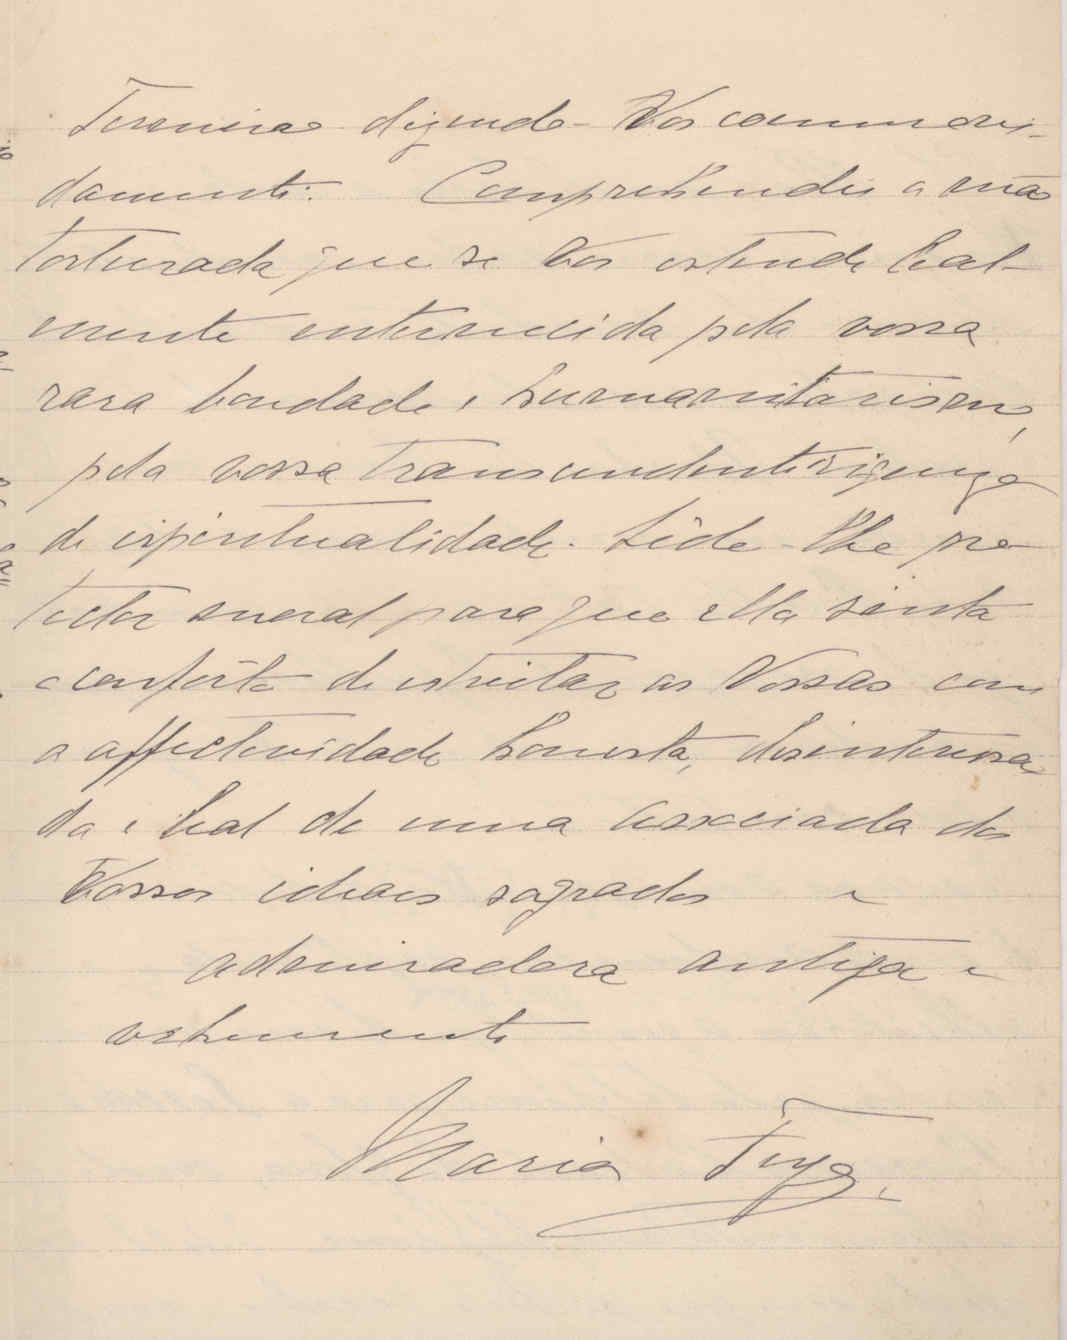 Termino dizendo-Vos commovi-
damente: Comprehendei a mão
torturada que se Vos estende leal-
mente enternecida pela vossa
rara bondade e humanitarismo,
pela vossa transcendente
de espiritualidade. Sêde-lhe pro-
tector moral para que ella sinta
o confôrto de estreitar as Vossas com
a affectividade honesta, desinteressa-
da e leal de uma associada dos
Vossos ideaes sagrados e
admiradora antiga e
vehemente
Maria